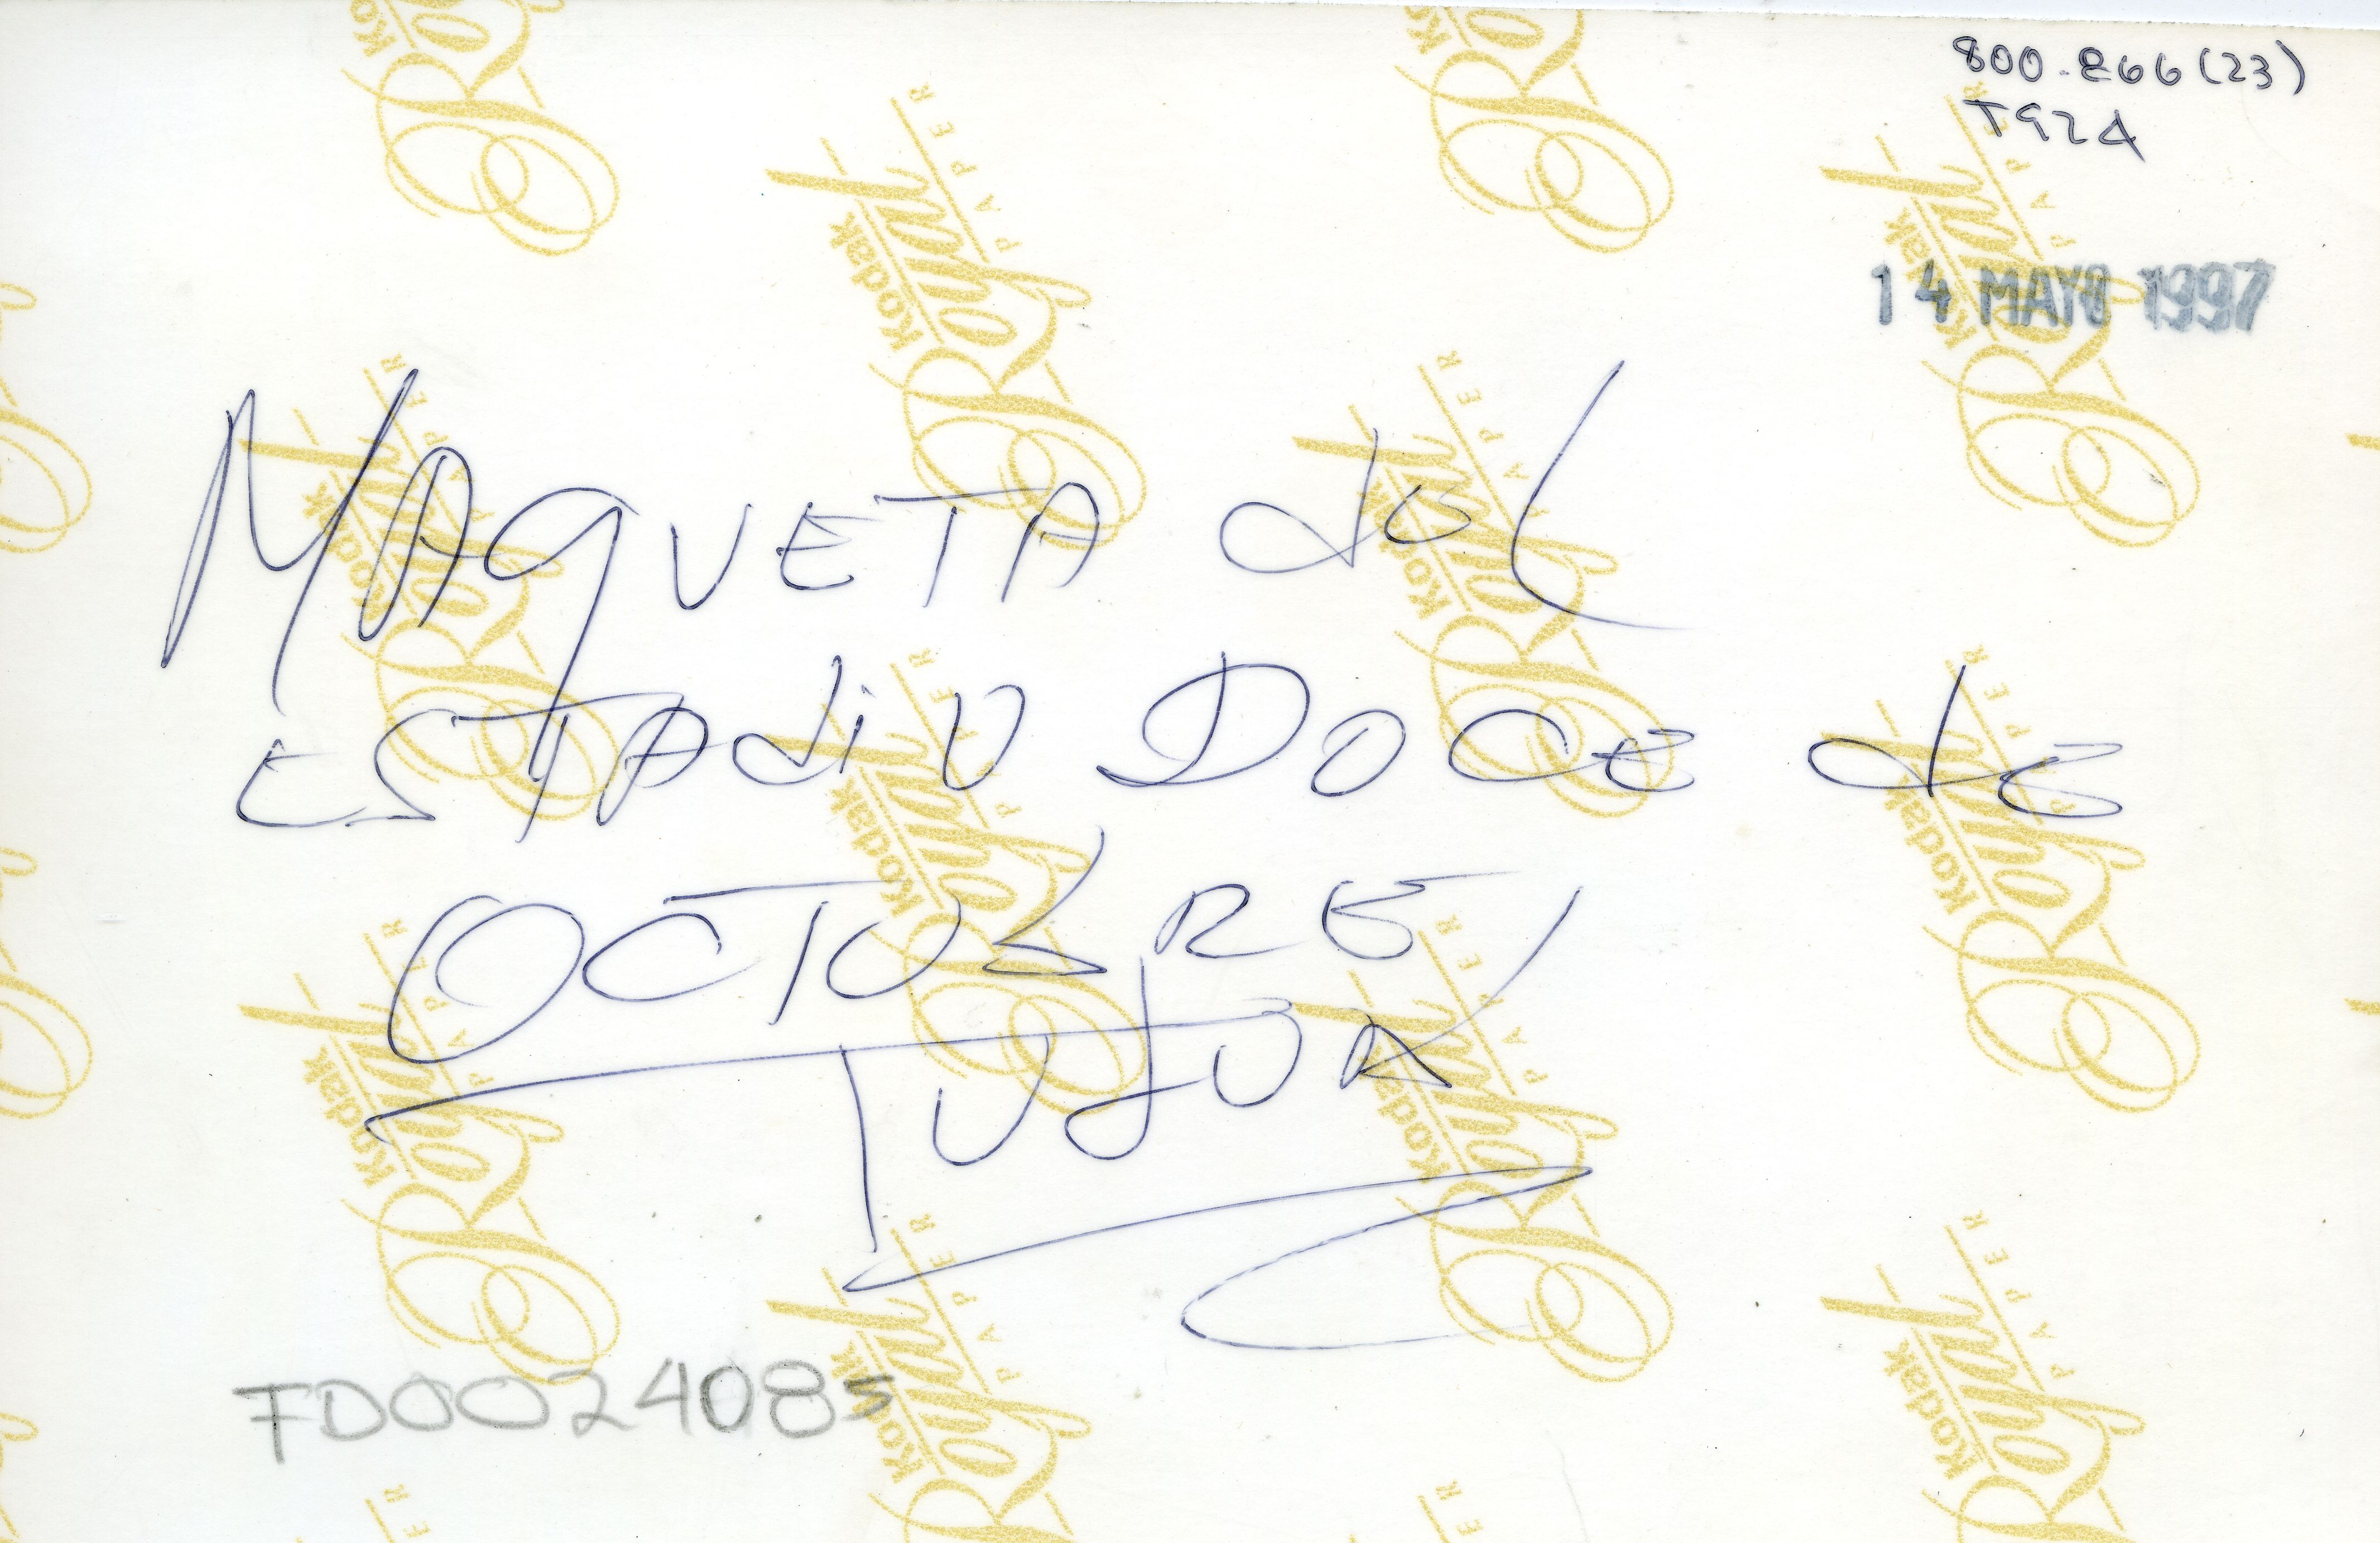 800-866(23)
T924
14 MAYO 1997
MAQUETA del
ESTADiO DOCE de
OCTUBRE
TULUA
FD0024085
Kodak Royal PAPER